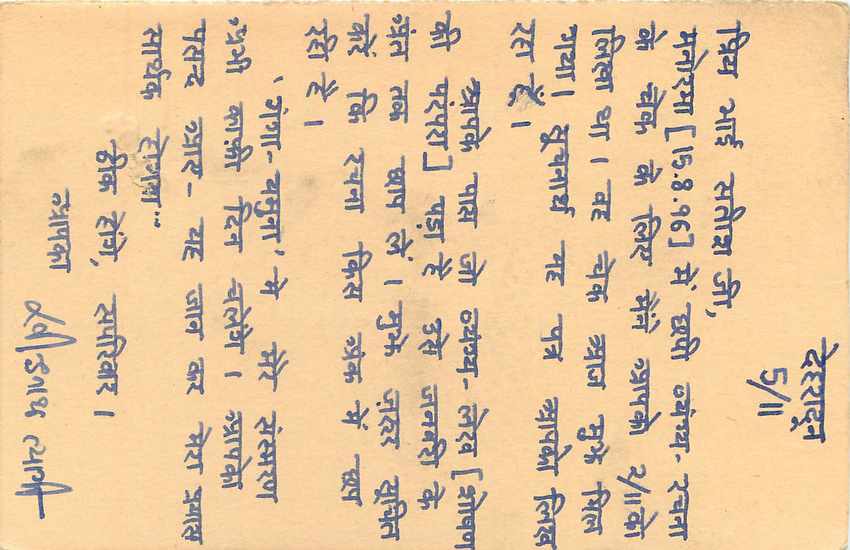 देहरादून
5/11
प्रिय भाई सतीश जी,
मनोरमा [15.8.96] में छपी व्यंग्य-रचना
के चेक के लिए मैंने आपको 2/11 को
लिखा था। वह चेक आज मुझे मिल
गया। सूचनार्थ यह पत्र आपको लिख
रहा हूँ।
आपके पास जो व्यंग्य-लेख [शोषण
की परंपरा] पड़ा है उसे जनवरी के
अंत तक छाप लें। मुझे ज़रूर सूचित
करें कि रचना किस अंक में छप
रही है।
'गंगा-यमुना' में मेरे संस्मरण
अभी काफी दिन चलेंगे। आपको
पसन्द आए- यह जान कर मेरा प्रयास
सार्थक होगया...
ठीक होंगे, सपरिवार।
आपका
त्यागी